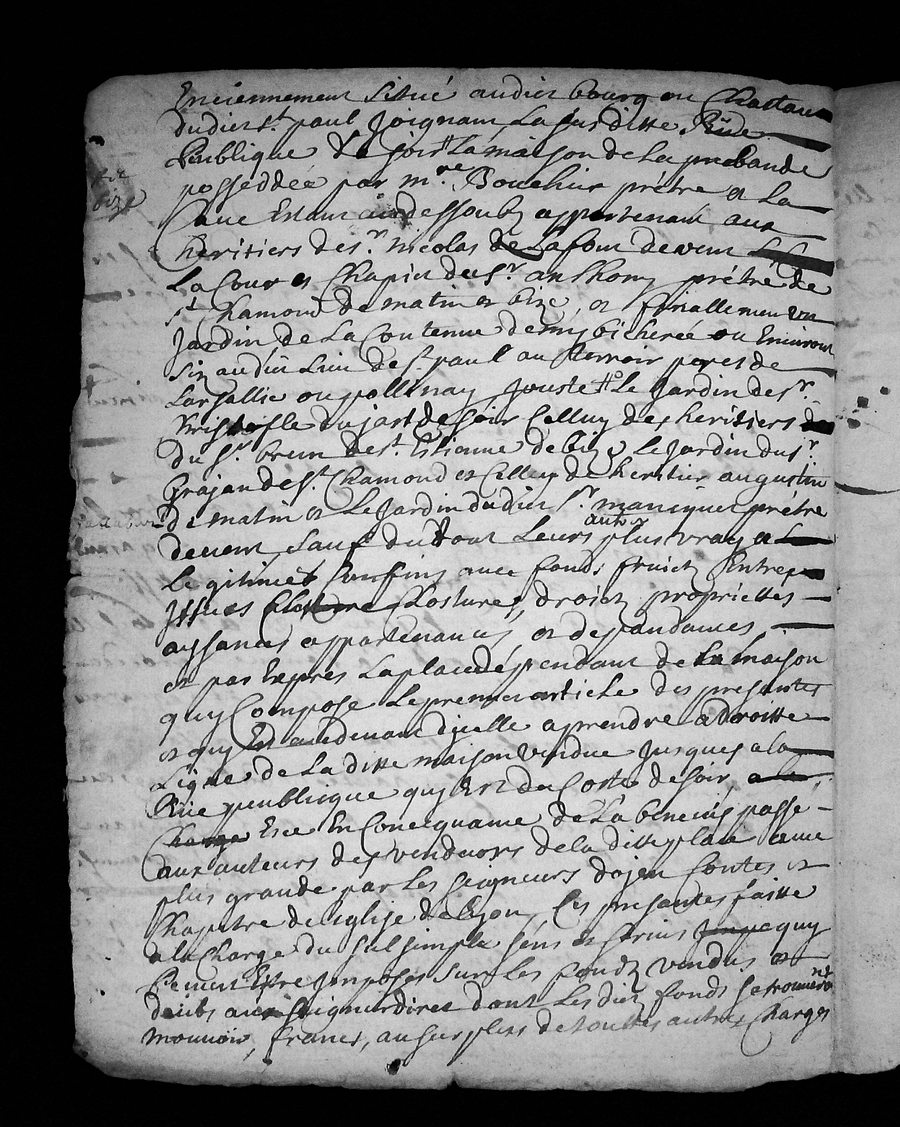 Enciennement situé audict bourg ou Chattau
dudict st paul Joignant La susditte Rüe
Publique de soir La maison de La prebande
posséddée par mre Bouchin prétre et La
Cave Estant au dessoubz appartenant aux
heritiers de sr nicolas de Lafont devent
La Cour et Chapin du sr anthony prétré de
st Chamond de matin et bize, et finallement un
Jardin de La Contenue demy bicherée ou Environ
Siz audit Lieu de st paul au terroir pores de
Largallie ou pollinay Jouste Le Jardin de sr
Cristofle dujast de soir Celluy des heritiers
du sr brun de st Estienne de bize, Le Jardin du sr
Grajan de st Chamond et Celluy de heritier augustin
de matin et Le Jardin dudict sr maniquet prétre
devent, sauf du tout Leurs autres plus vrays et
Legitimes Confins avec fonds fruictz Entrees
Issues Clostures, droictz propriettes
aysances appartenances et despandances
et par Expres La place dépendant de La maison
quy Compose Le premier article des presantes
et quy Est audevant dycelle a prendre a droitte
Ligne de La ditte maison vendue Jusques a la
Rüe publicque quy Est du Costé de soir,
Et ce En Consequance de La beneuis passé
aux auteurs des vendeurs de la ditte place avec
plus grande par Les seigneurs dojen Contes et
Chapitre de Léglise de Lyon, Ces presantes faitte
a la Charge du sul simple sens et servis quy
Peuvent Estre Imposés sur Les fondz vendus et
deubs aux seigneurdires dont Lesdictz fonds se trouveront
mouvoir, francs, au surplus de touttes autres Charges